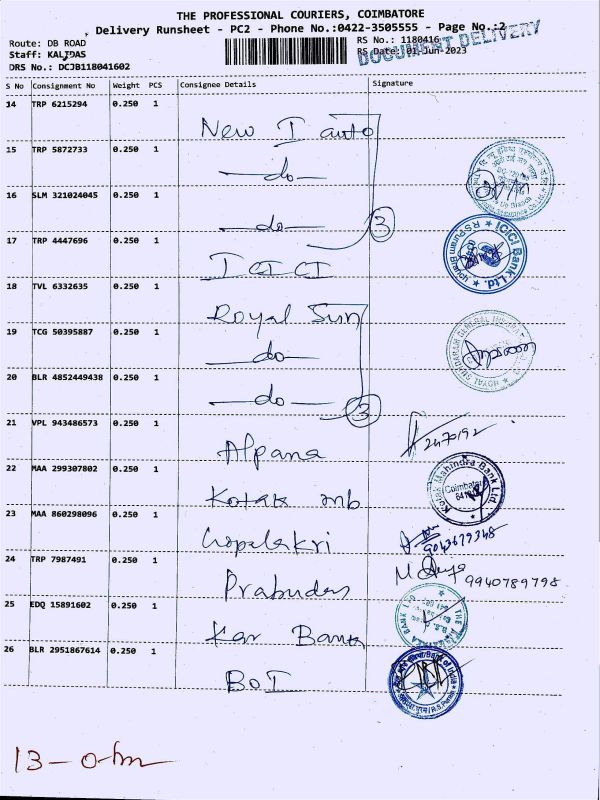 THE PROFESSIONAL COURIERS, COIMBATORE
Delivery Runsheet - PC2 - Phone No.:0422-3505555 - Page No.:2
Route: DB ROAD
RS No.: 1180416
Staff: KALIDAS
RS Date: 01-Jun-2023
DOCUMENT DELIVERY
DRS No.: DCJB118041602
S No Consignment No Weight PCS Consignee Details Signature
14 TRP 6215294 0.250 1
New I auto
15 TRP 5872733 0.250 1
—do—
16 SLM 321024045 0.250 1
—do—
3
17 TRP 4447696 0.250 1
ICICI
ICICI Bank Ltd. RSPuram Branch
18 TVL 6332635 0.250 1
Royal Sun
19 TCG 50395887 0.250 1
—do—
20 BLR 4852449438 0.250 1
—do—
3
21 VPL 943486573 0.250 1
Alpana
2470192
22 MAA 299307802 0.250 1
Kotak mb
Kotak Mahindra Bank Ltd. Coimbatore
23 MAA 860298096 0.250 1
Gopalakri
9043679348
24 TRP 7987491 0.250 1
Prabudas
9940789798
25 EDQ 15891602 0.250 1
Kar Bank
26 BLR 2951867614 0.250 1
BOI
Bank of India
13